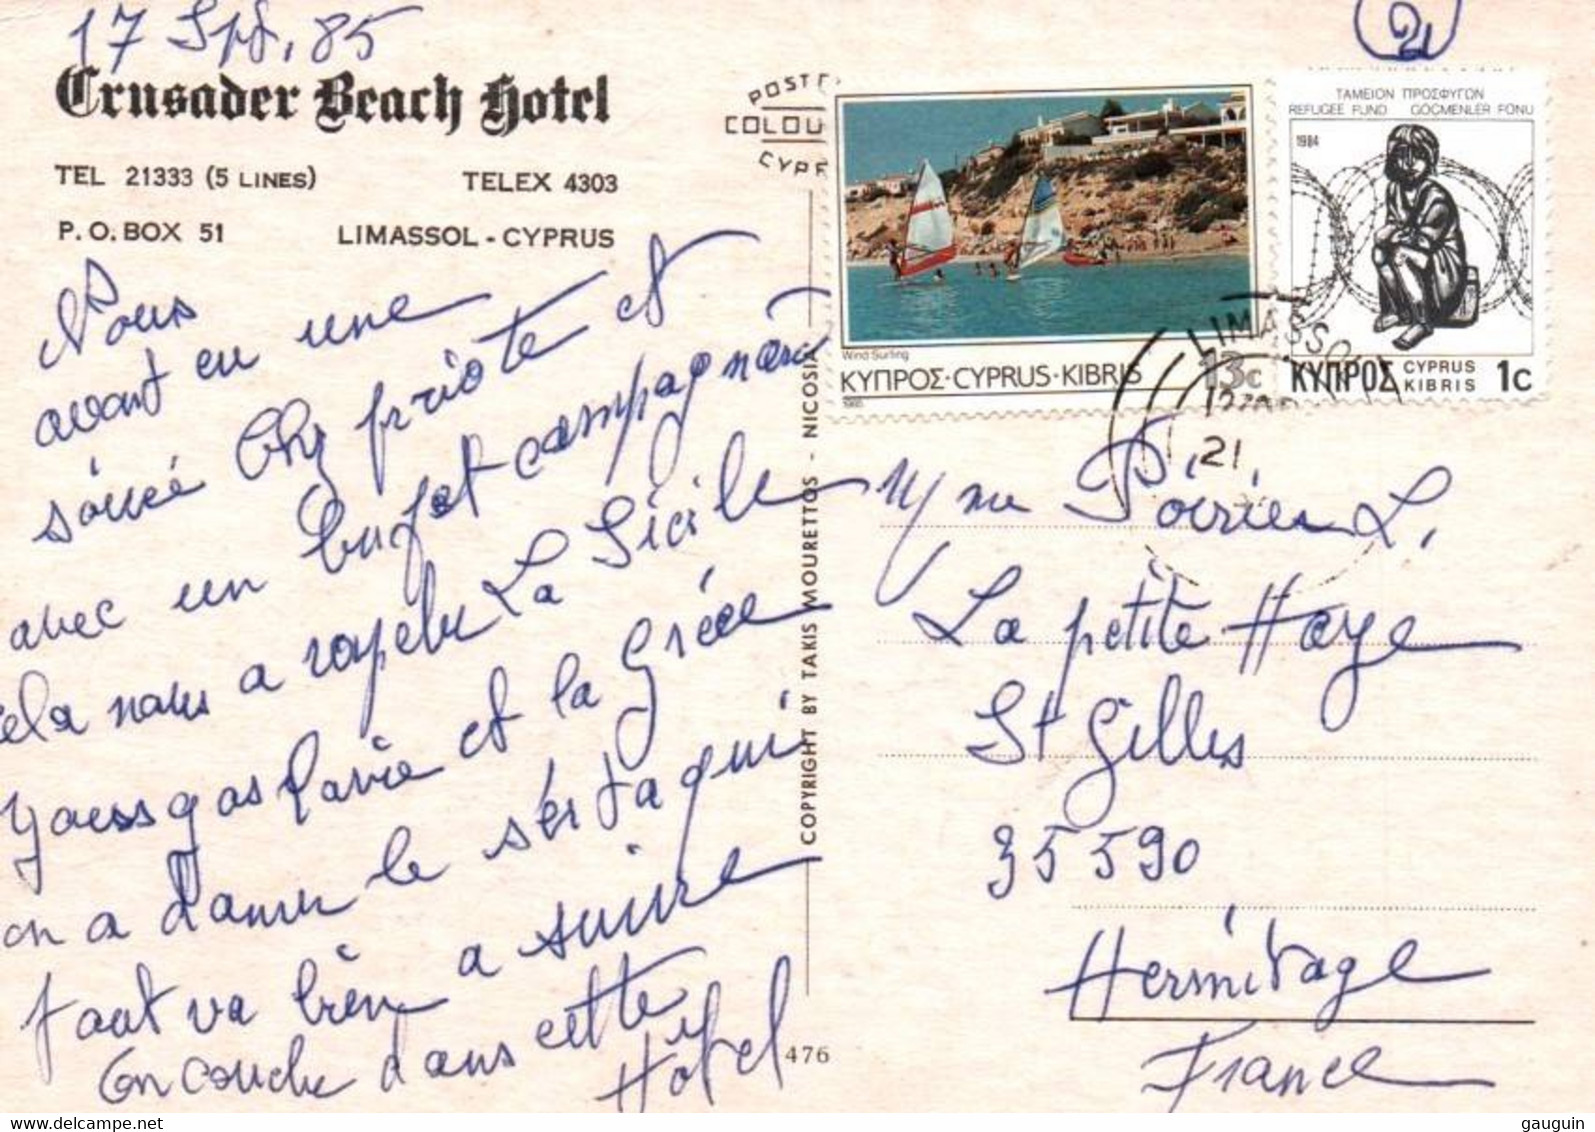 17 Spt, 85
21
Crusader Beach Hotel
TEL 21333 (5 LINES) TELEX 4303
P.O. BOX 51 LIMASSOL - CYPRUS
Nous
avont eu une
soireé Chz priote et
avec un bufet campagnard
cela nous a rapelu La Sicile
Yougos lavie et la Gréce
on a danser le sertaqui
tout va bien a suivre
on couche dans cette
Hotel
COPYRIGHT BY TAKIS MOURETTOS - NICOSIA
476
POST
COLOU
CYPR
Wind Surfing
ΚΥΠΡΟΣ·CYPRUS·KIBRIS 13c
1985
ΤΑΜΕΙΟΝ ΠΡΟΣΦΥΓΩΝ
REFUGEE FUND GÖÇMENLER FONU
1984
ΚΥΠΡΟΣ CYPRUS KIBRIS 1c
LIMASSOL
21
Mme Poirier L.
La petite Haye
St Gilles
35590
Hermitage
France
www.delcampe.net
gauguin